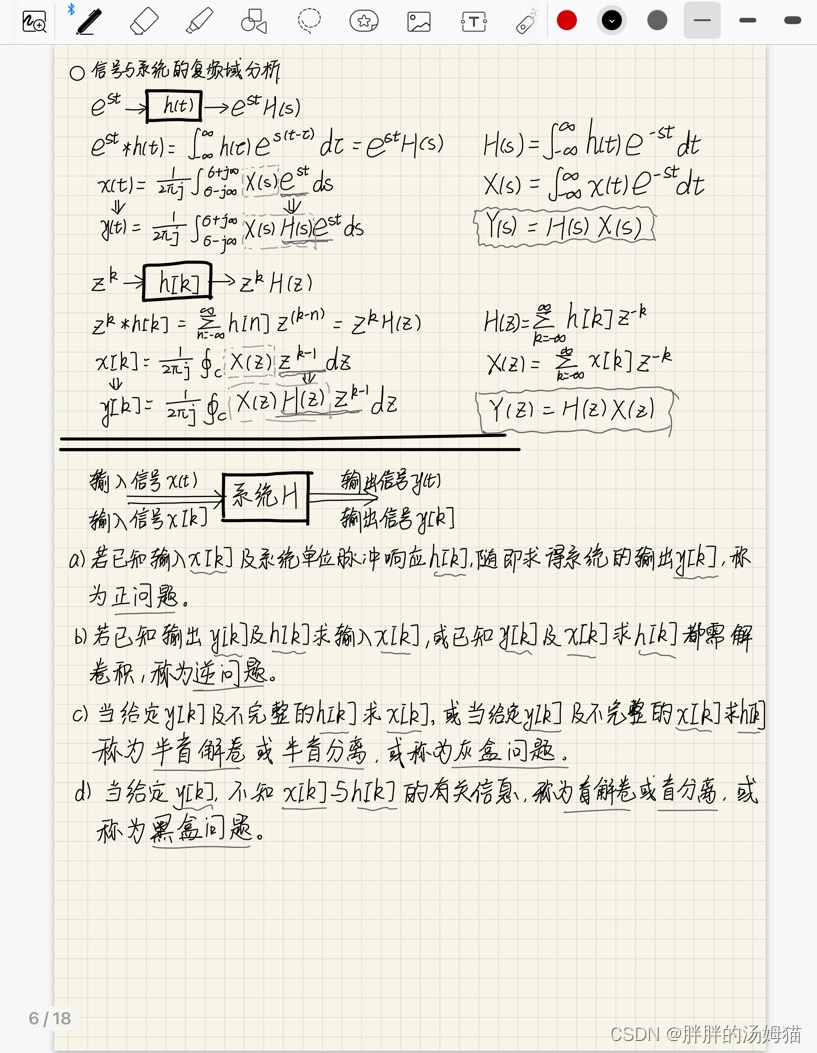 ○ 信号与系统的复频域分析
e^{st} → h(t) → e^{st}H(s)
e^{st}*h(t) = ∫_{-∞}^{∞} h(τ)e^{s(t-τ)} dτ = e^{st}H(s) H(s) = ∫_{-∞}^{∞} h(t)e^{-st}dt
x(t) = 1/2πj ∫_{σ-j∞}^{σ+j∞} X(s)e^{st}ds X(s) = ∫_{-∞}^{∞} x(t)e^{-st}dt
⇓ ⇓
y(t) = 1/2πj ∫_{σ-j∞}^{σ+j∞} X(s)H(s)e^{st}ds Y(s) = H(s)X(s)
z^k → h[k] → z^k H(z)
z^k*h[k] = ∑_{n=-∞}^{∞} h[n]z^{(k-n)} = z^k H(z) H(z)=∑_{k=-∞}^{∞} h[k]z^{-k}
x[k] = 1/2πj ∮_C X(z)z^{k-1}dz X(z) = ∑_{k=-∞}^{∞} x[k]z^{-k}
⇓ ⇓
y[k] = 1/2πj ∮_C X(z)H(z)z^{k-1}dz Y(z) = H(z)X(z)
输入信号x(t) 系统H 输出信号y(t)
输入信号x[k] 输出信号y[k]
a) 若已知输入x[k]及系统单位脉冲响应h[k],随即求得系统的输出y[k],称
为正问题。
b) 若已知输出y[k]及h[k]求输入x[k],或已知y[k]及x[k]求h[k]都需解
卷积,称为逆问题。
c) 当给定y[k]及不完整的h[k]求x[k],或当给定y[k]及不完整的x[k]求h[k]
称为半盲解卷或半盲分离,或称为灰盒问题。
d) 当给定y[k],不知x[k]与h[k]的有关信息,称为盲解卷或盲分离,或
称为黑盒问题。
6 / 18
CSDN @胖胖的汤姆猫